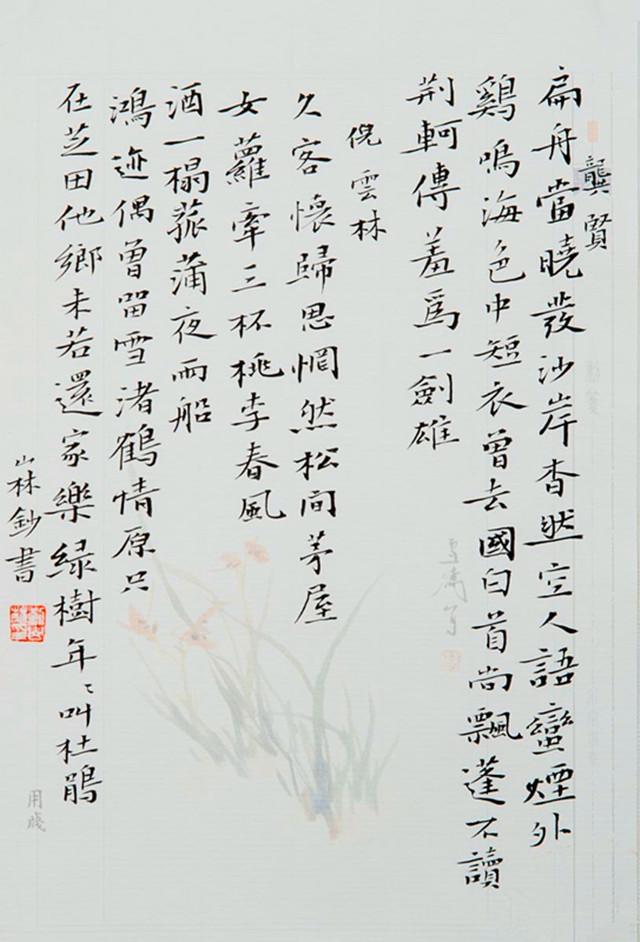 龔賢
扁舟當曉發沙岸杳然空人語蠻煙外
鷄鳴海色中短衣曾去國白首尚飄蓬不讀
荆軻傳羞爲一劍雄
倪雲林
久客懷歸思惘然松間茅屋
女蘿牽三杯桃李春風
酒一榻菰蒲夜雨船
鴻迹偶曾留雪渚鶴情原只
在芝田他鄉未若還家樂緑樹年〻叫杜鵑
山林鈔書
用牋